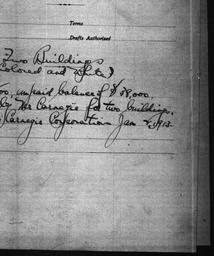 Terms
Drafts Authorized
Two Buildings
Colored and White)
unpaid balance of $38,000.
by Mr Carnegie for two building,
Carnegie Corporation Jan 1913.